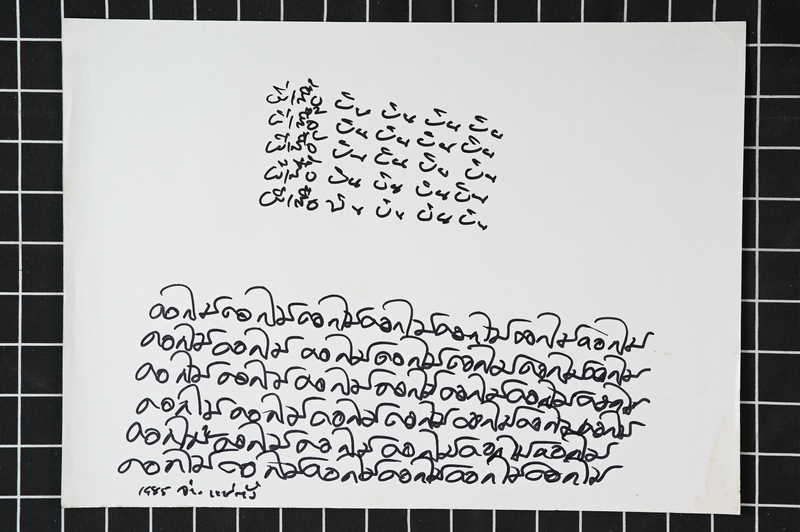 ผีเสื้อ บิน บิน บิน บิน
ผีเสื้อ บิน บิน บิน บิน
ผีเสื้อ บิน บิน บิน บิน
ผีเสื้อ บิน บิน บิน บิน
ผีเสื้อ บิน บิน บิน บิน
ดอกไม้ดอกไม้ดอกไม้ดอกไม้ดอกไม้ดอกไม้ดอกไม้
ดอกไม้ดอกไม้ดอกไม้ดอกไม้ดอกไม้ดอกไม้ดอกไม้
ดอกไม้ดอกไม้ดอกไม้ดอกไม้ดอกไม้ดอกไม้ดอกไม้
ดอกไม้ดอกไม้ดอกไม้ดอกไม้ดอกไม้ดอกไม้ดอกไม้
ดอกไม้ดอกไม้ดอกไม้ดอกไม้ดอกไม้ดอกไม้
ดอกไม้ดอกไม้ดอกไม้ดอกไม้ดอกไม้ดอกไม้
1985 จ่าง แซ่ตั้ง